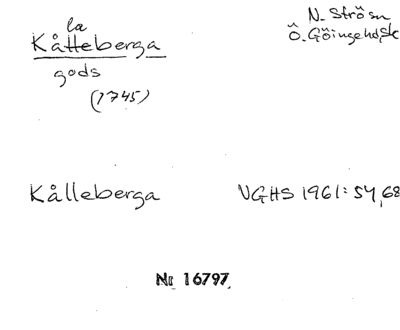 la
Kåtteberga
gods
(1745)
N. Strö sn
Ö. Göinge hd, Sk
Kålleberga
VGHS 1961: 54, 68
Nr 16797